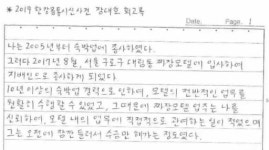 * 2019 한강몸통시신사건 장대호 회고록
Date. Page. 1
나는 2003년부터 숙박업에 종사하였다.
그러다 2017년 8월, 서울 구로구 대림동 짜장모텔에 입사하여
지배인으로 종사하게 되었다.
10년 이상의 숙박업 경력으로 인하여, 모텔의 전반적인 업무를
원활히 수행할 수 있었고, 그 때문에 짜장모텔 업주는 나를
신뢰하여, 모텔 내의 업무에 직접적으로 관여하는 일이 적었으며
그는 오전에 잠깐 들러서 수금만 해가는 정도였다.